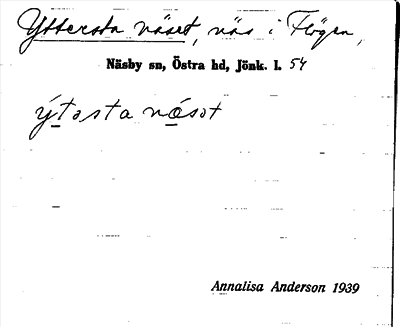 Yttersta näset, näs i Flögen,
Näsby sn, Östra hd, Jönk. l. 54
ý̱təsta nǫ̱sət
Annalisa Anderson 1939